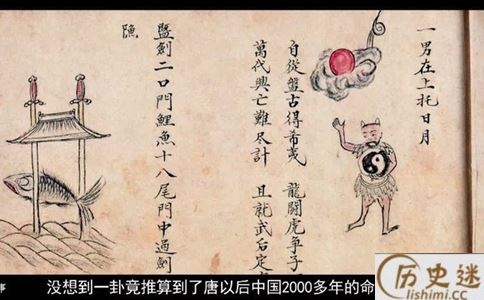 一男在上托日月
自從盤古得希夷 龍鬪虎爭子
萬代興亡難尽計 且就武后定
劍二口門鯉魚十八尾門中過劍
事
没想到一卦竟推算到了唐以后中国2000多年的命
历史迷
lishimi.cc